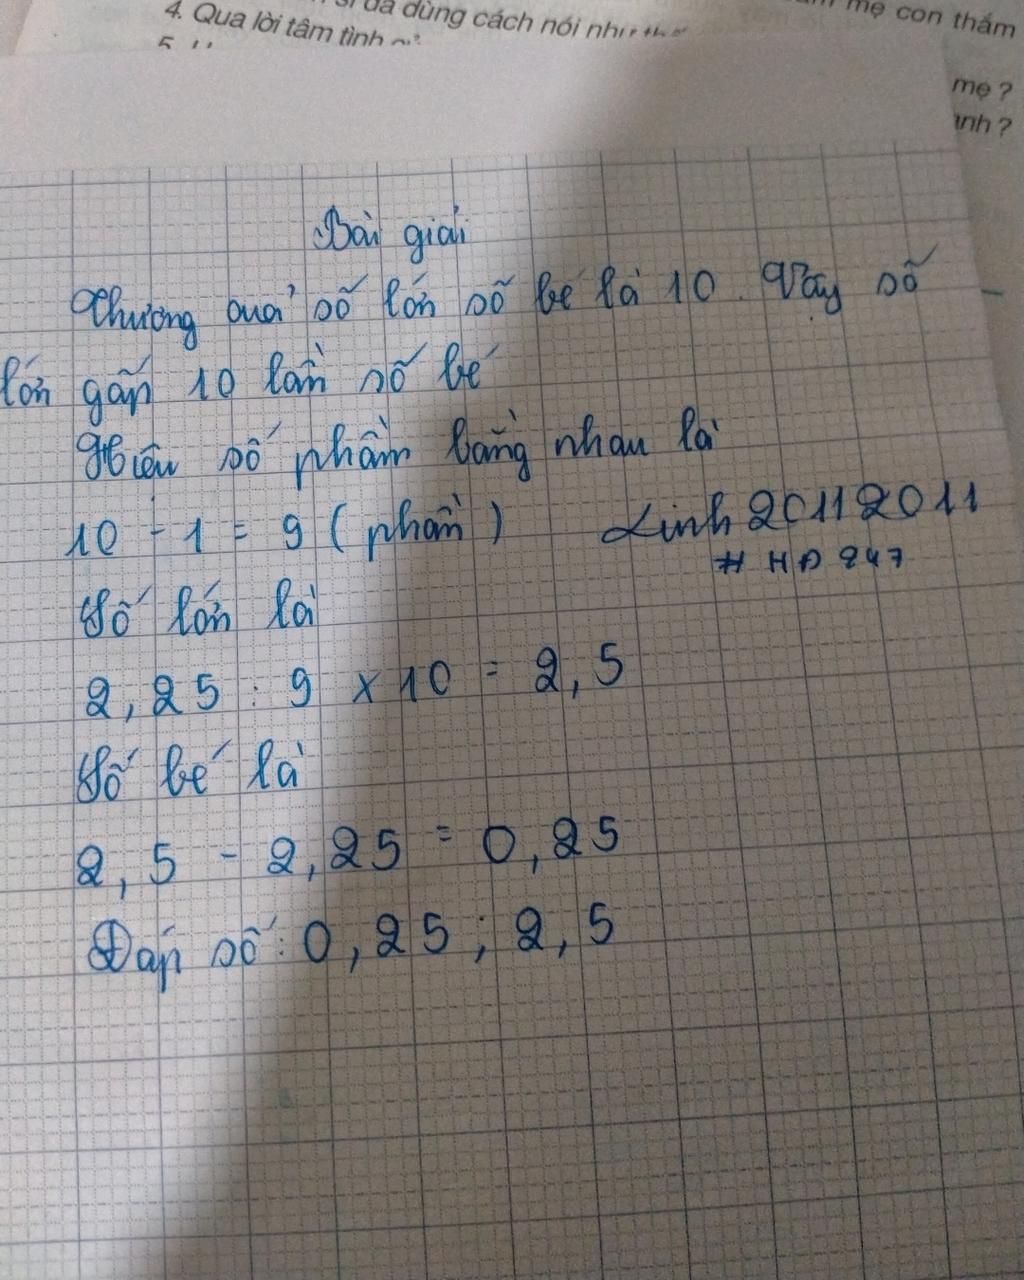 4. Qua lời tâm tình
đã dùng cách nói như
mẹ con thăm
5.
mẹ ?
anh ?
Bài giải
Thương quả số lớn số bé là 10. Vậy số
lớn gấp 10 lần số bé
Hiệu số phần bằng nhau là
10 - 1 = 9 ( phần )
Linh 20112011
# HD 247
Số lớn là
2,25 : 9 x 10 = 2,5
Số bé là
2,5 - 2,25 = 0,25
Đáp số : 0,25 ; 2,5